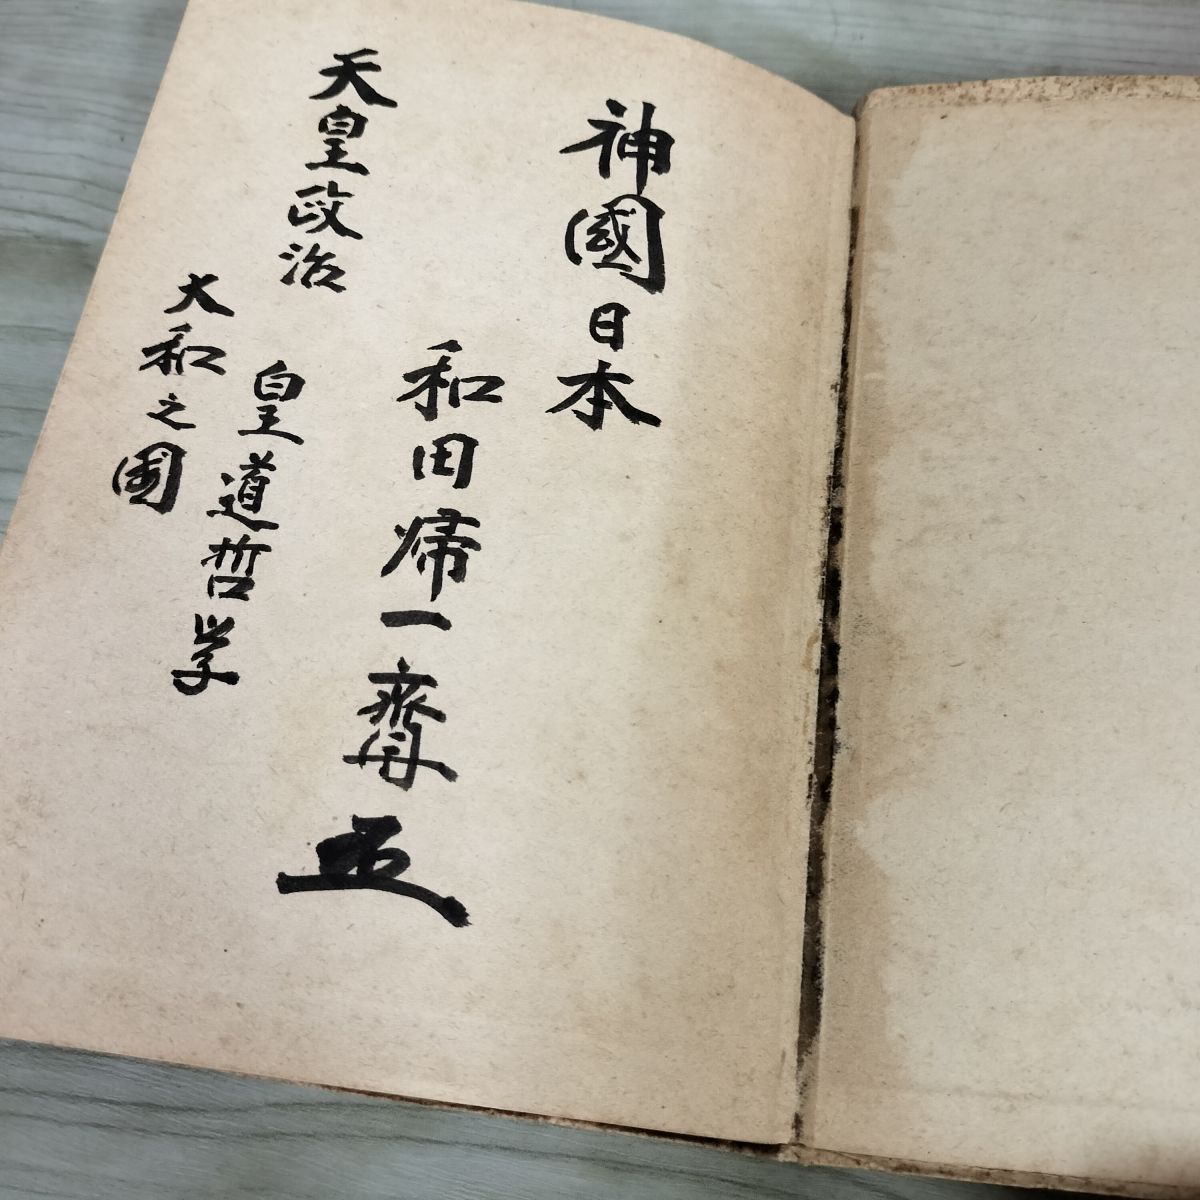 神國日本
和田帰一齋
天皇政治
皇道哲学
大和之國